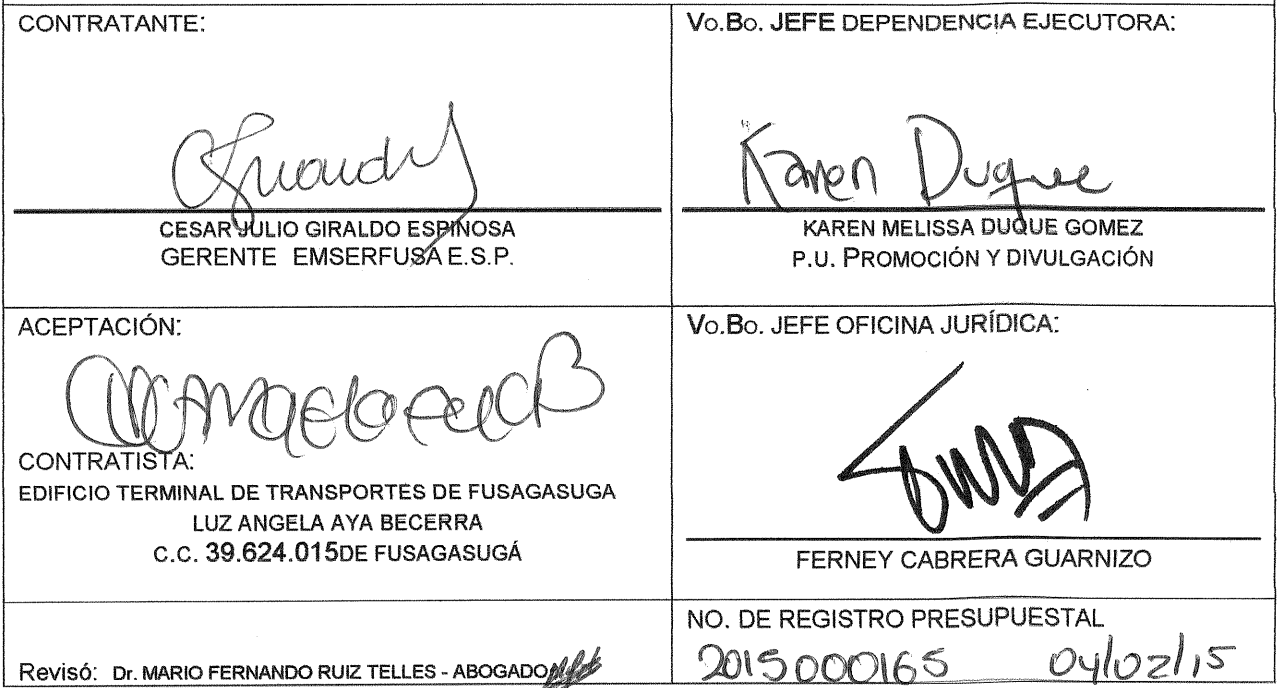 CONTRATANTE:
CESAR JULIO GIRALDO ESPINOSA
GERENTE EMSERFUSA E.S.P.
Vo.Bo. JEFE DEPENDENCIA EJECUTORA:
Karen Duque
KAREN MELISSA DUQUE GOMEZ
P.U. PROMOCIÓN Y DIVULGACIÓN
ACEPTACIÓN:
CONTRATISTA:
EDIFICIO TERMINAL DE TRANSPORTES DE FUSAGASUGA
LUZ ANGELA AYA BECERRA
C.C. 39.624.015DE FUSAGASUGÁ
Vo.Bo. JEFE OFICINA JURÍDICA:
FERNEY CABRERA GUARNIZO
Revisó: Dr. MARIO FERNANDO RUIZ TELLES - ABOGADO
NO. DE REGISTRO PRESUPUESTAL
2015000165 04/02/15